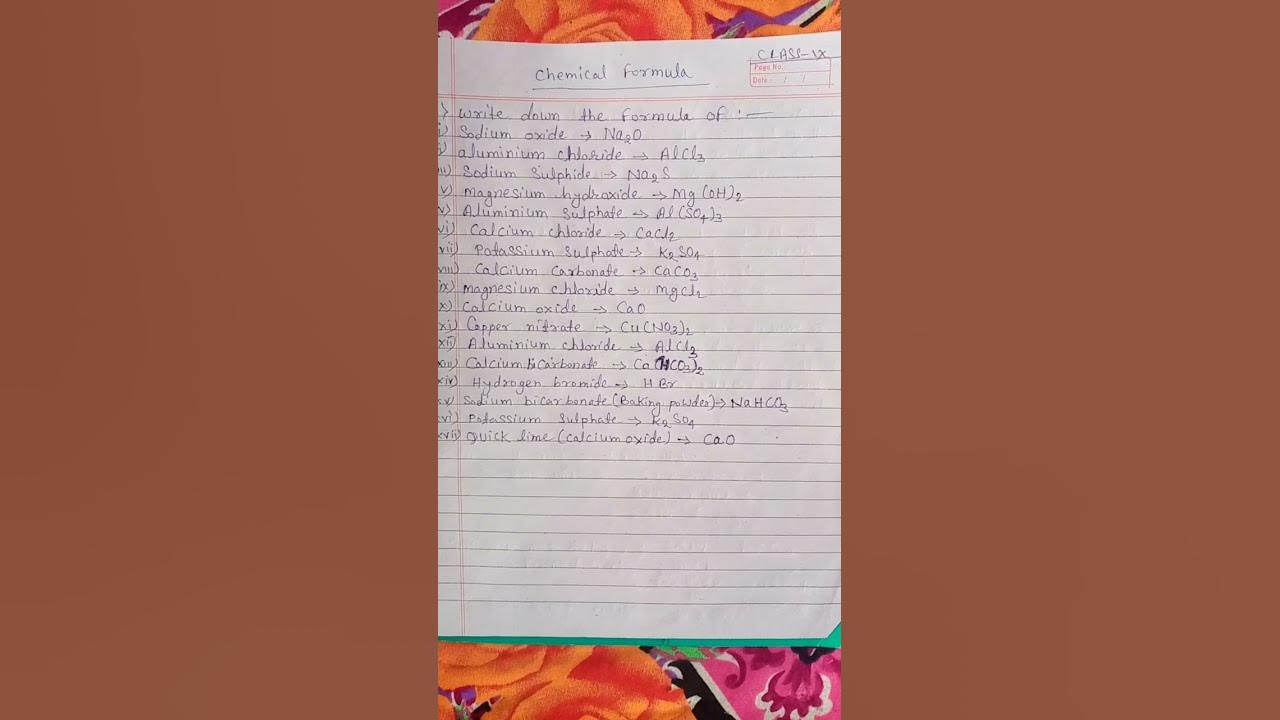 CLASS-IX
Page No.:
Date: / /
Chemical Formula
) Write down the formula of :—
i) Sodium oxide → Na₂O
i) aluminium chloride → AlCl₃
iii) Sodium Sulphide → Na₂S
v) Magnesium hydroxide → Mg(OH)₂
v) Aluminium Sulphate → Al(SO₄)₃
vi) Calcium chloride → CaCl₂
vii) Potassium Sulphate → K₂SO₄
viii) Calcium Carbonate → CaCO₃
ix) Magnesium chloride → MgCl₂
x) Calcium oxide → CaO
xi) Copper nitrate → Cu(NO₃)₂
xii) Aluminium chloride → AlCl₃
xiii) Calcium bicarbonate → Ca(HCO₃)₂
xiv) Hydrogen bromide → HBr
xv) Sodium bicarbonate (Baking powder) → NaHCO₃
xvi) Potassium Sulphate → K₂SO₄
xvii) Quick lime (calcium oxide) → CaO